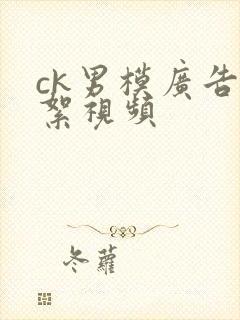 ck男模廣告
絮視頻
冬蘿